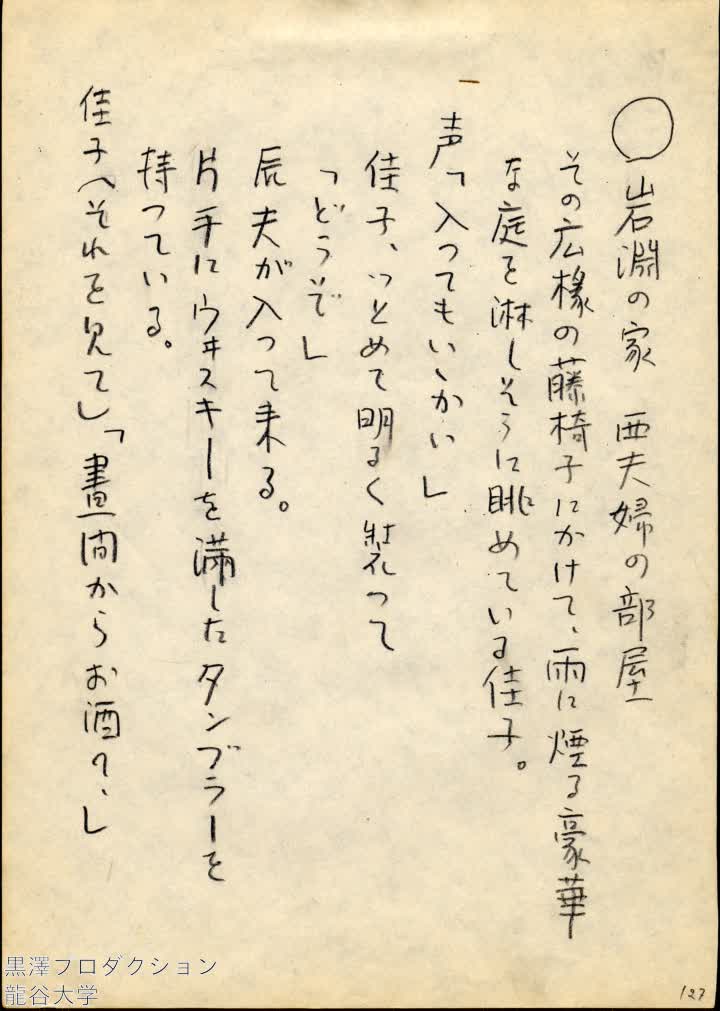 ○岩淵の家 西夫婦の部屋
その広椽の藤椅子にかけて、雨に煙る豪華
な庭を淋しそうに眺めている佳子。
声「入ってもいゝかい」
佳子、つとめて明るく装って
「どうぞ」
辰夫が入って来る。
片手にウヰスキーを満したタンブラーを
持っている。
佳子(それを見て)「晝間からお酒?、」
127
黒澤プロダクション
龍谷大学